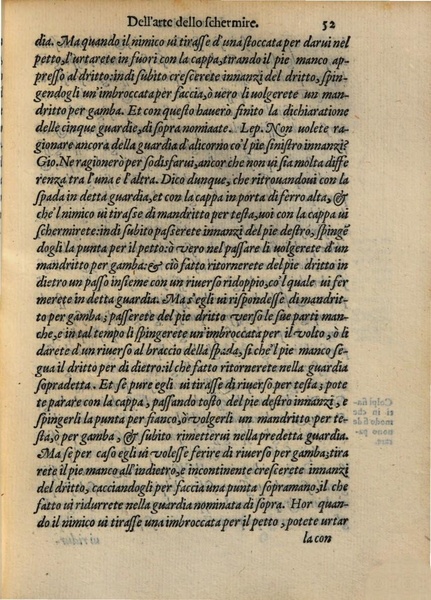 Dell'arte dello schermire. 52
dia. Ma quando il nimico ui tirasse d'una stoccata per darui nel
petto, l'urtarete in fuori con la cappa, tirando il pie manco ap-
presso al dritto: indi subito crescerete innanzi del dritto, spin-
gendogli un'imbroccata per faccia, ò uero li volgerete un man-
dritto per gamba. Et con questo hauerò finito la dichiaratione
delle cinque guardie, di sopra nomiaate. Lep. Non uolete ra-
gionare ancora della guardia d'alicorno co'l pie sinistro innanzi?
Gio. Ne ragionerò per sodisfarui, ancor che non ui sia molta diffe
renza tra l'una e l'altra. Dico dunque, che ritrouandoui con la
spada in detta guardia, et con la cappa in porta di ferro alta, &
che'l nimico ui tirasse di mandritto per testa, uoi con la cappa ui
schermirete: indi subito passerete innanzi del pie destro, spingē
dogli la punta per il petto: ò vero nel passare li uolgerete d'un
mandritto per gamba: & ciò fatto ritornerete del pie dritto in
dietro un passo insieme con un riuerso ridoppio, co'l quale ui fer
merete in detta guardia. Ma s'egli ui rispondesse di mandrit-
to per gamba; passerete del pie dritto verso le sue parti man-
che, e in tal tempo li spingerete un'imbroccata per il volto, ò li
darete d'un riuerso al braccio della spada, sì che'l pie manco se-
gua il dritto per di dietro: il che fatto ritornerete nella guardia
sopradetta. Et se pure egli ui tirasse di riuerso per testa; pote
te parare con la cappa, passando tosto del pie destro innanzi, e
spingerli la punta per fianco, ò volgerli un mandritto per te-
sta, ò per gamba, & subito rimetterui nella predetta guardia.
Ma se per caso egli ui uolesse ferire di riuerso per gamba; tira
rete il pie manco all'indietro, e incontinente crescerete innanzi
del dritto, cacciandogli per faccia una punta sopramano, il che
fatto ui ridurrete nella guardia nominata di sopra. Hor quan-
do il nimico ui tirasse una imbroccata per il petto, potete urtar
la con